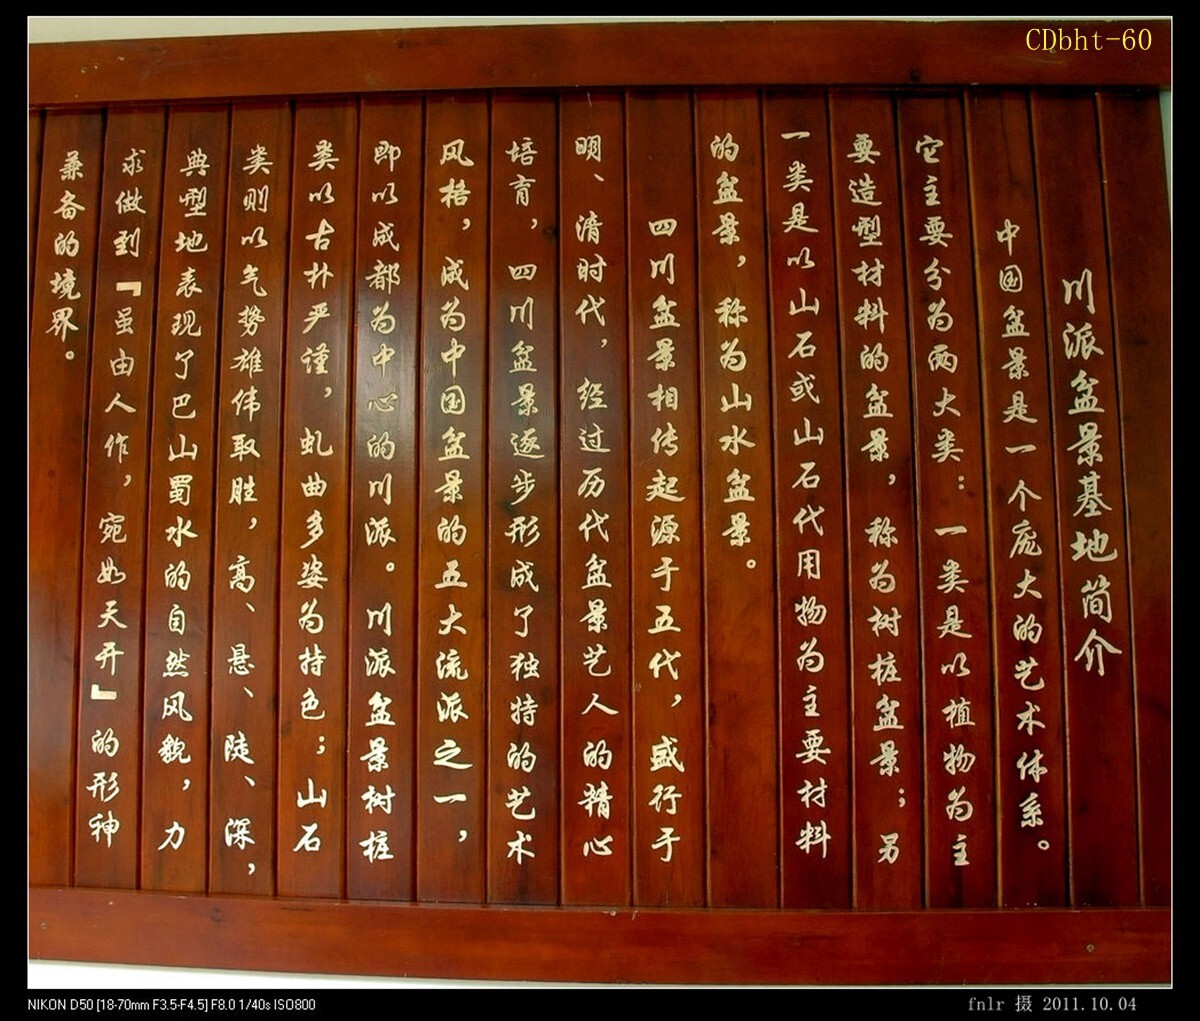 CDbht-60
川派盆景基地简介
中国盆景是一个庞大的艺术体系。
它主要分为两大类：一类是以植物为主
要造型材料的盆景，称为树桩盆景；另
一类是以山石或山石代用物为主要材料
的盆景，称为山水盆景。
四川盆景相传起源于五代，盛行于
明、清时代，经过历代盆景艺人的精心
培育，四川盆景逐步形成了独特的艺术
风格，成为中国盆景的五大流派之一，
即以成都为中心的川派。川派盆景树桩
类以古朴严谨，虬曲多姿为持色；山石
类则以气势雄伟取胜，高、悬、陡、深，
典型地表现了巴山蜀水的自然风貌，力
求做到『虽由人作，宛如天开』的形神
兼备的境界。
NIKON D50 [18-70mm F3.5-F4.5] F8.0 1/40s ISO800
fnlr 摄 2011.10.04